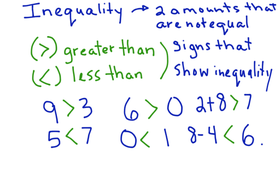 Inequality → 2 amounts that are not equal
(>) greater than
(<) less than
Signs that show inequality
9 > 3 6 > 0 2+8 > 7
5 < 7 0 < 1 8-4 < 6.